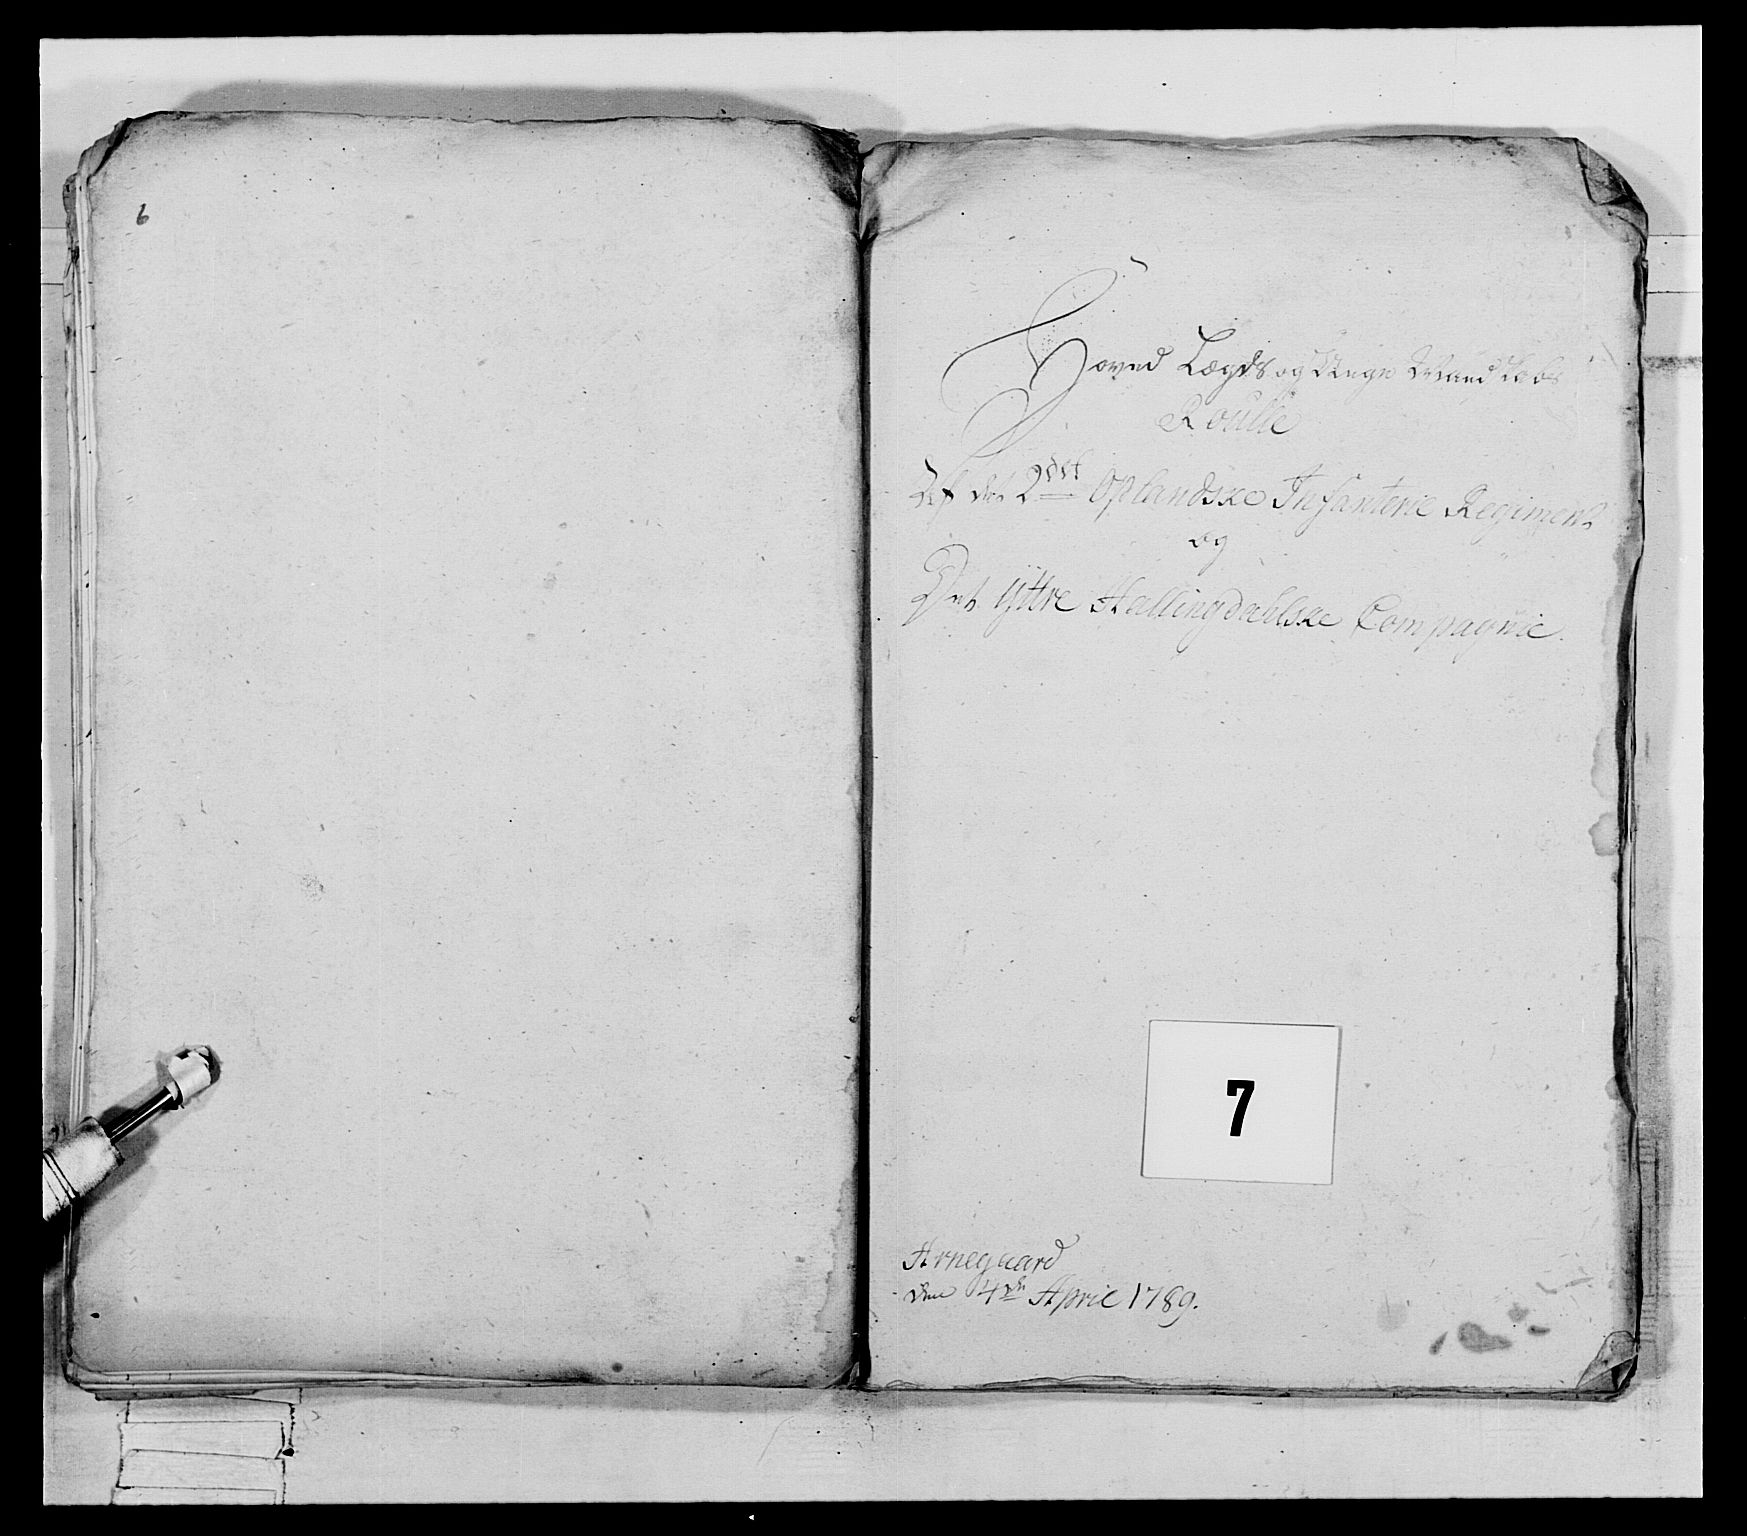 6
Hoved Lægds og Unge Mandskabs
Roulle
Af det 2det Oplandske Infanterie Regiment
og
Det Yttre Hallingdahlske Compagnie.
7
Arnegaard
den 4de April 1789.